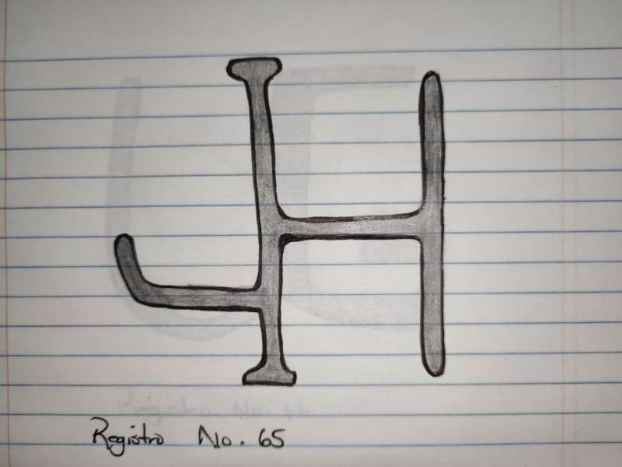 Registro No. 65